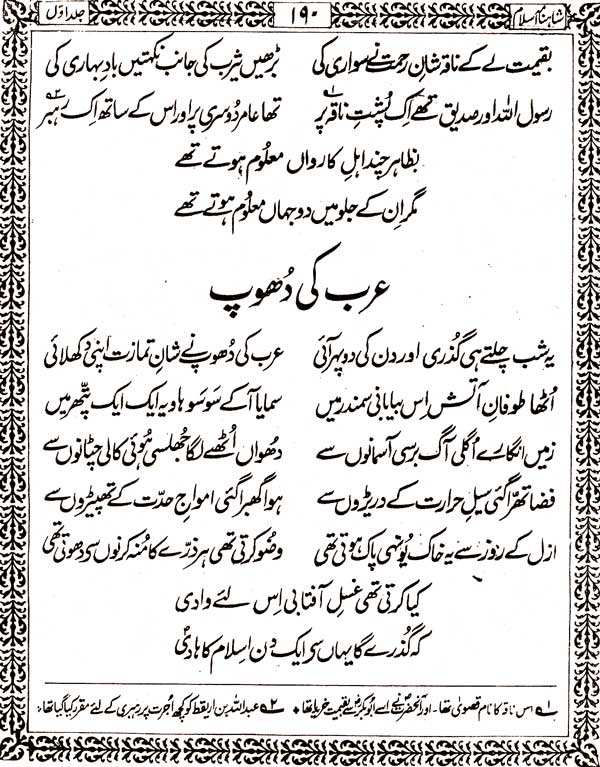 شاہنامۂ اسلام ۱۹۰ جلد اوّل
بقیمت لے کے ناقہ شانِ رحمت نے سواری کی بڑھیں یثرب کی جانب نکہتیں بادِ بہاری کی
رسول اللہ اور صدیق تھے اک پُشتِ ناقہ پر تھا عامر دُوسری پر اور اس کے ساتھ اِک رہبر
بظاہر چند اہلِ کارواں معلُوم ہوتے تھے
مگر اِن کے جلو میں دو جہاں معلُوم ہوتے تھے
عرب کی دُھوپ
یہ شب چلتے ہی گذری اور دن کی دوپہر آئی عرب کی دُھوپ نے شانِ تمازت اپنی دکھلائی
اُٹھا طوفانِ آتش اِس بیابانی سمندر میں سمایا آ کے سَو سَو ہاویہ ایک ایک پتھر میں
زمیں انگارے اُگلی آگ برسی آسمانوں سے دُھواں اُٹھنے لگا جُھلسی ہُوئی کالی چٹانوں سے
فضا تھرّا گئی سیلِ حرارت کے دریڑوں سے ہوا گھبرا گئی امواجِ حدّت کے تھپیڑوں سے
ازل کے روز سے یہ خاک یُونہی پاک ہوتی تھی وضو کرتی تھی ہر ذرّے کا مُنہ کرنوں سے دھوتی تھی
کیا کرتی تھی غسلِ آفتابی اِس لئے وادی
کہ گذرے گا یہاں سے ایک دن اِسلام کا ہادیؐ
۱؎ اس ناقہ کا نام قصویٰ تھا۔ اور آنحضرتؐ نے اسے ابوبکرؓ سے بقیمت خریدا تھا ۲؎ عبداللہ بن اریقط کو کچھ اُجرت پر رہبری کے لئے مقرر کیا گیا تھا۔